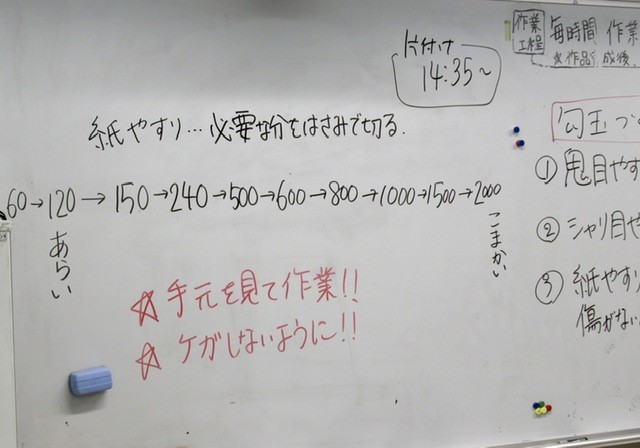 作業
工程
毎時間 作業
片付け
14:35~
紙やすり…必要な分をはさみで切る.
60→120→150→240→500→600→800→1000→1500→2000
あらい
こまかい
☆手元を見て作業!!
☆ケガしないように!!
勾玉づく
①鬼目やす
②シャリ目や
③紙やすり
傷がない